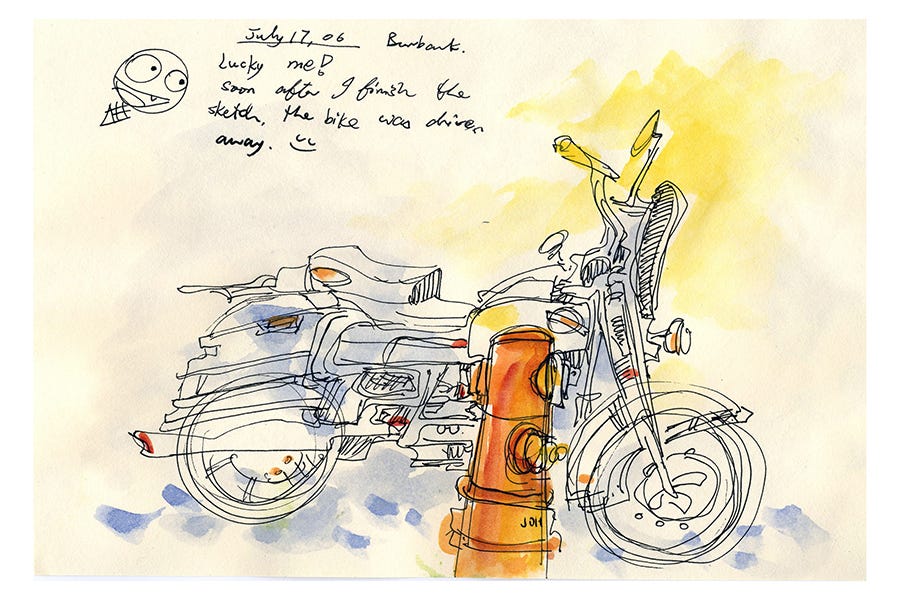 July 17, 06 Burbank.
Lucky me!
soon after I finish the
sketch, the bike was driven
away.
JOH